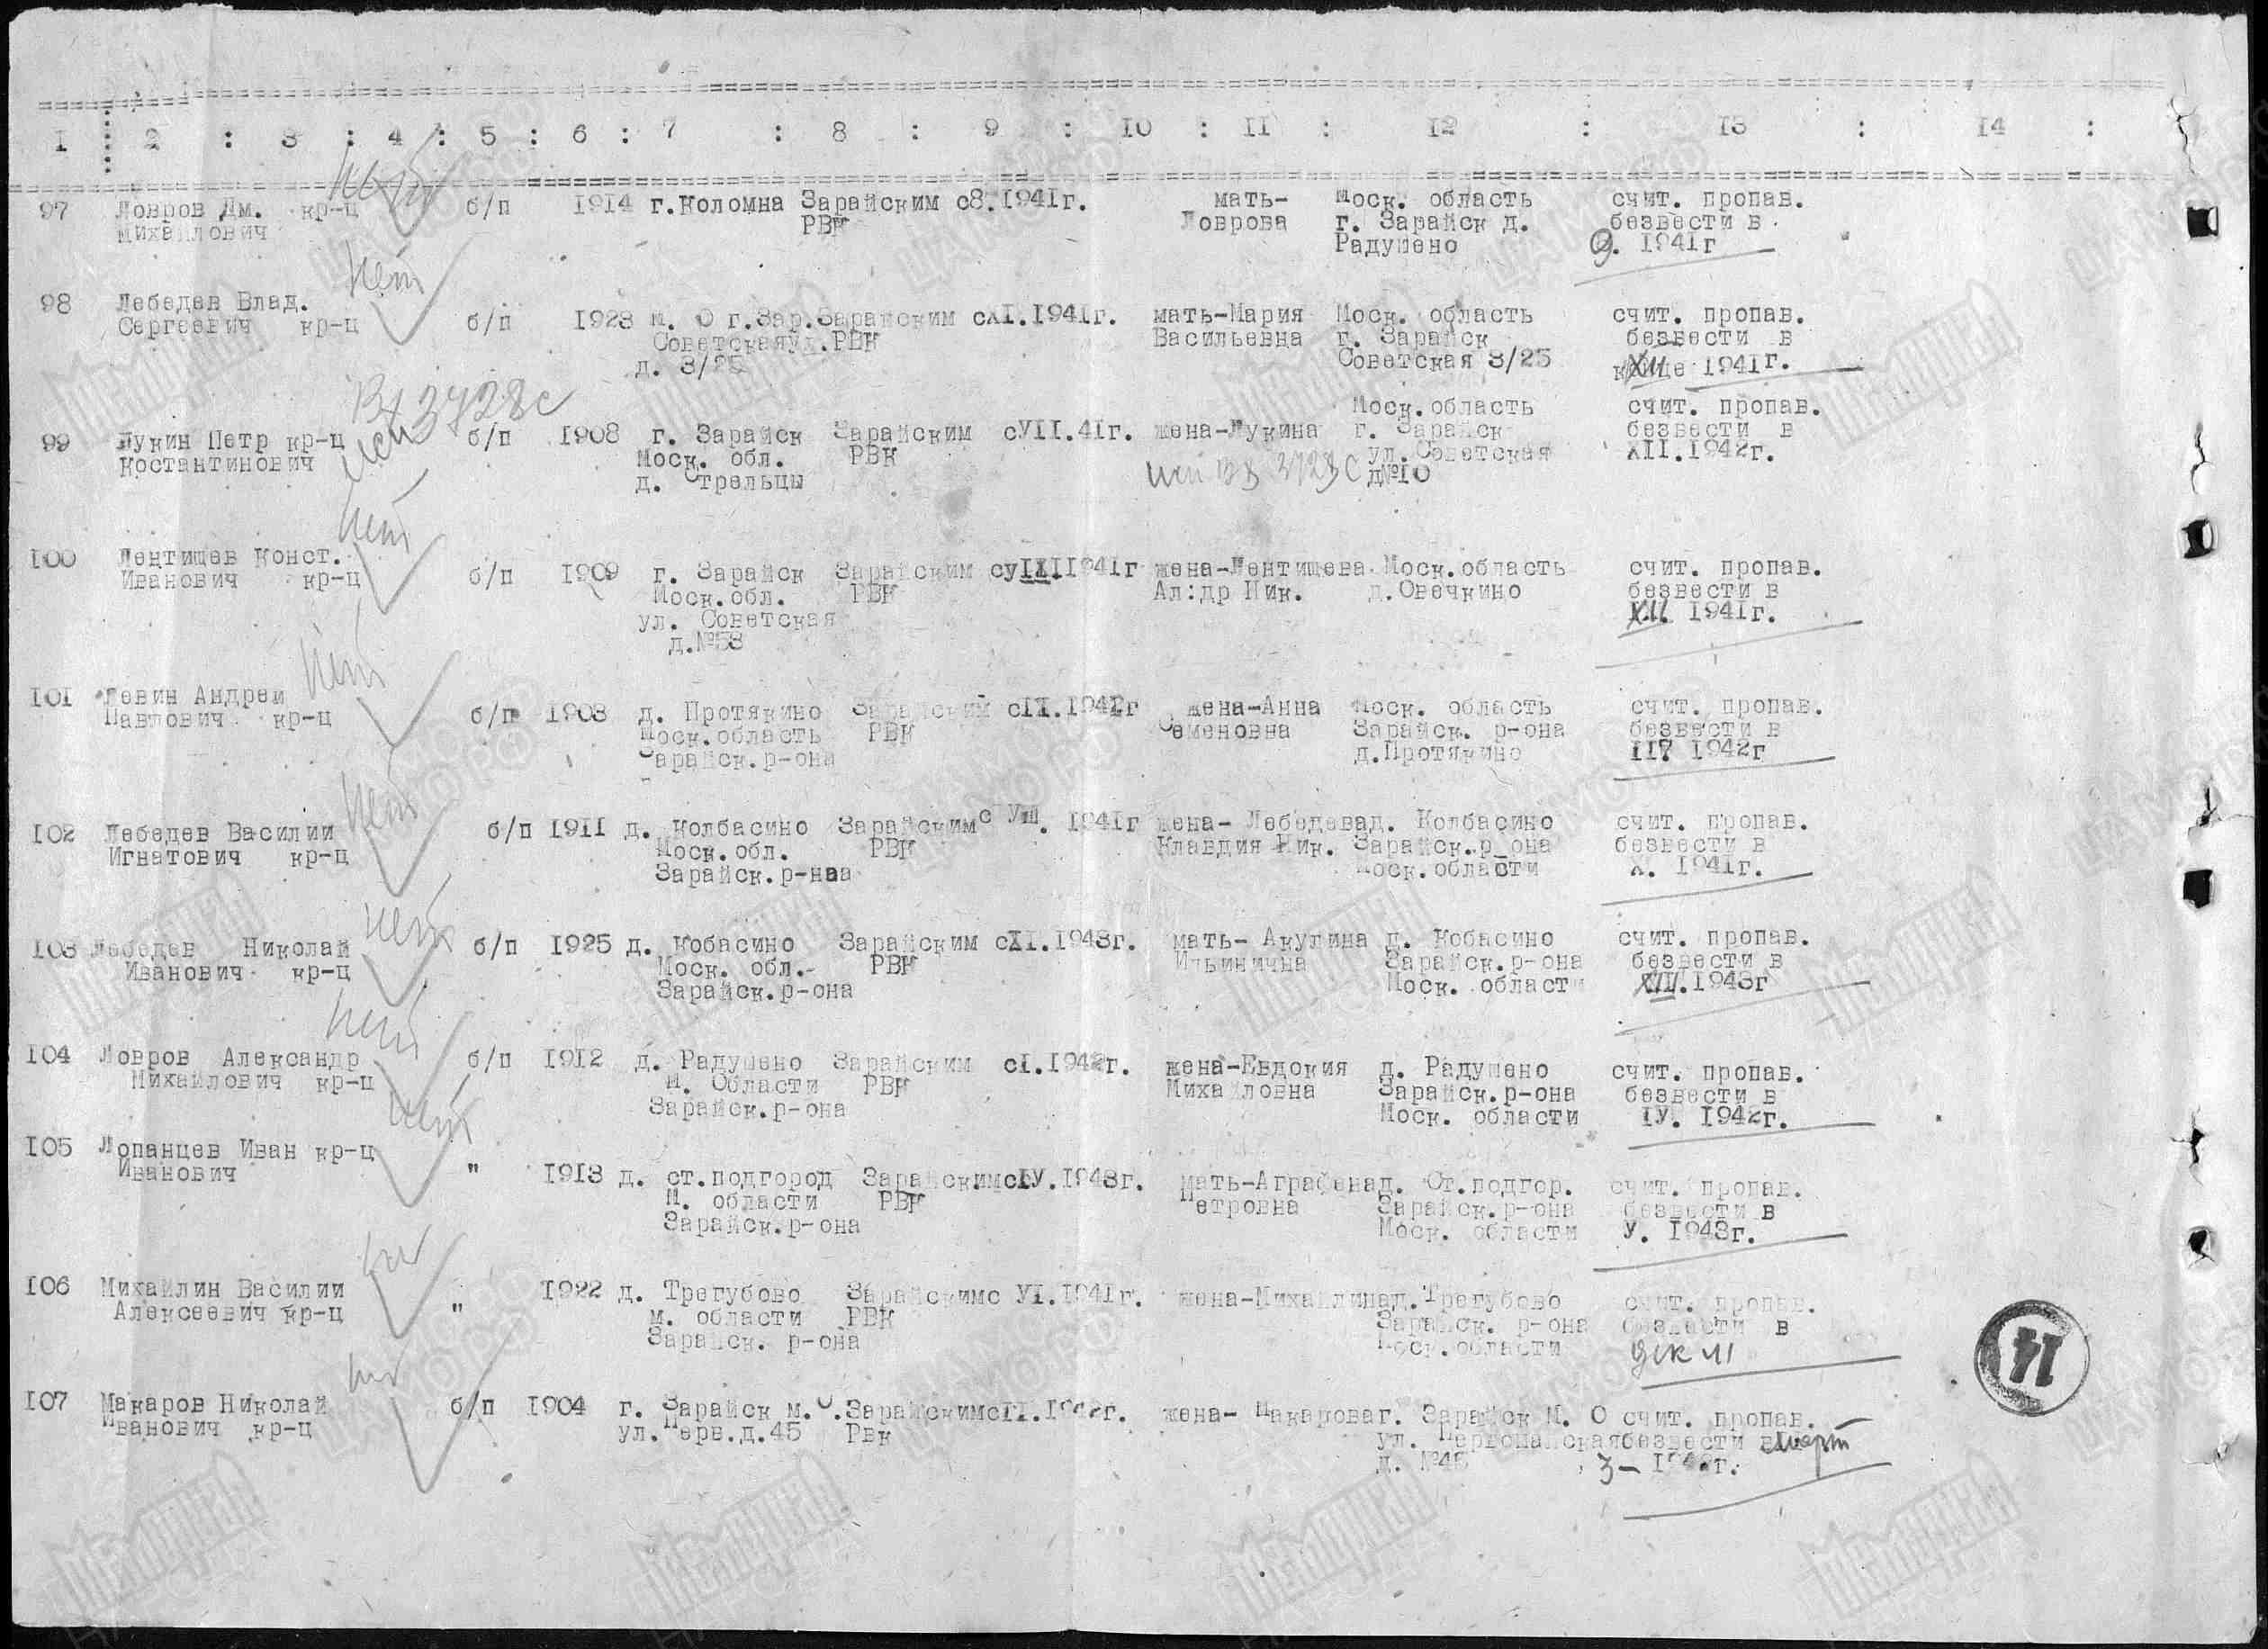 I 2 : 3 : 4 : 5 : 6 : 7 : 8 : 9 : 10 : II : I2 : I3 : I4 :
нет
97 Ловров Дм. кр-ц б/п 1914 г.Коломна Зарайским с8.1941г. мать- Моск. область счит. пропав.
Михайлович РВК Ловрова г. Зарайск д. безвести в
Радушено 9. 1941г
нет
98 Лебедев Влад.
Сергеевич кр-ц б/п 1923 м. О г.Зар.Зарайским сXI.1941г. мать-Мария Моск. область счит. пропав.
Советскаяул.РВК Васильевна г. Зарайск безвести в
д. 3/25 Советская 3/25 XII 1941г.
Вх3728с
Моск.область счит. пропав.
99 Лукин Петр кр-ц б/п 1908 г. Зарайск Зарайским сУII.41г. жена-Лукина г. Зарайск безвести в
Костантинович Моск. обл. РВК ул.Советская XII.1942г.
д. Стрельцы д№10
нет
100 Лентищев Конст.
Иванович кр-ц б/п 1909 г. Зарайск Зарайским 1941г жена-Лентищева Моск.область счит. пропав.
Моск.обл. РВК Ал:др Ник. д.Овечкино безвести в
ул. Советская XII. 1941г.
д.№58
нет
101 Левин Андрей
Павлович кр-ц б/п 1903 д. Протякино Зарайским сII.1942г жена-Анна Моск. область счит. пропав.
Моск.область РВК Семеновна Зарайск. р-она безвести в
Зарайск.р-она д.Протякино 1942г
нет
102 Лебедев Василии б/п 1911 д. Колбасино Зарайским с УШ. 1941г жена- Лебедевад. Колбасино счит. пропав.
Игнатович кр-ц Моск.обл. РВК Клавдия Ник. Зарайск.р_она безвести в
Зарайск.р-наа Моск.области X. 1941г.
нет
103 Лебедев Николай б/п 1925 д. Кобасино Зарайским сXI.1943г. мать- Акулина д. Кобасино счит. пропав.
Иванович кр-ц Моск. обл. РВК Ильинична Зарайск.р-она безвести в
Зарайск.р-она Моск. области XII.1943г
нет
104 Ловров Александр б/п 1912 д. Радушено Зарайским сI.1942г. жена-Евдокия д. Радушено счит. пропав.
Михайлович кр-ц М. Области РВК Михайловна Зарайск.р-она безвести в
Зарайск.р-она Моск. области IУ. 1942г.
нет
105 Лопанцев Иван кр-ц
Иванович " 1913 д. ст.подгород Зарайским сIУ.1943г. мать-Аграфенад. Ст.подгор. счит. пропав.
М. области РВК Петровна Зарайск.р-она безвести в
Зарайск.р-она Моск. области У. 1943г.
106 Михайлин Василии 1922 д. Трегубово Зарайскимс УI.1941г. жена-Михайлинад.Трегубово счит. пропав.
Алексеевич кр-ц " м. области РВК Зарайск. р-она безвести в
Зарайск. р-она Моск.области дек 41
14
107 Макаров Николай б/п 1904 г. Зарайск м.О.ЗарайскимсII.1942г. жена- Макароваг. Зарайск М. О счит. пропав.
Иванович кр-ц ул.Перв.д.45 РВк ул. Первомайскаябезвести в март
д. №45 3- 1942г.